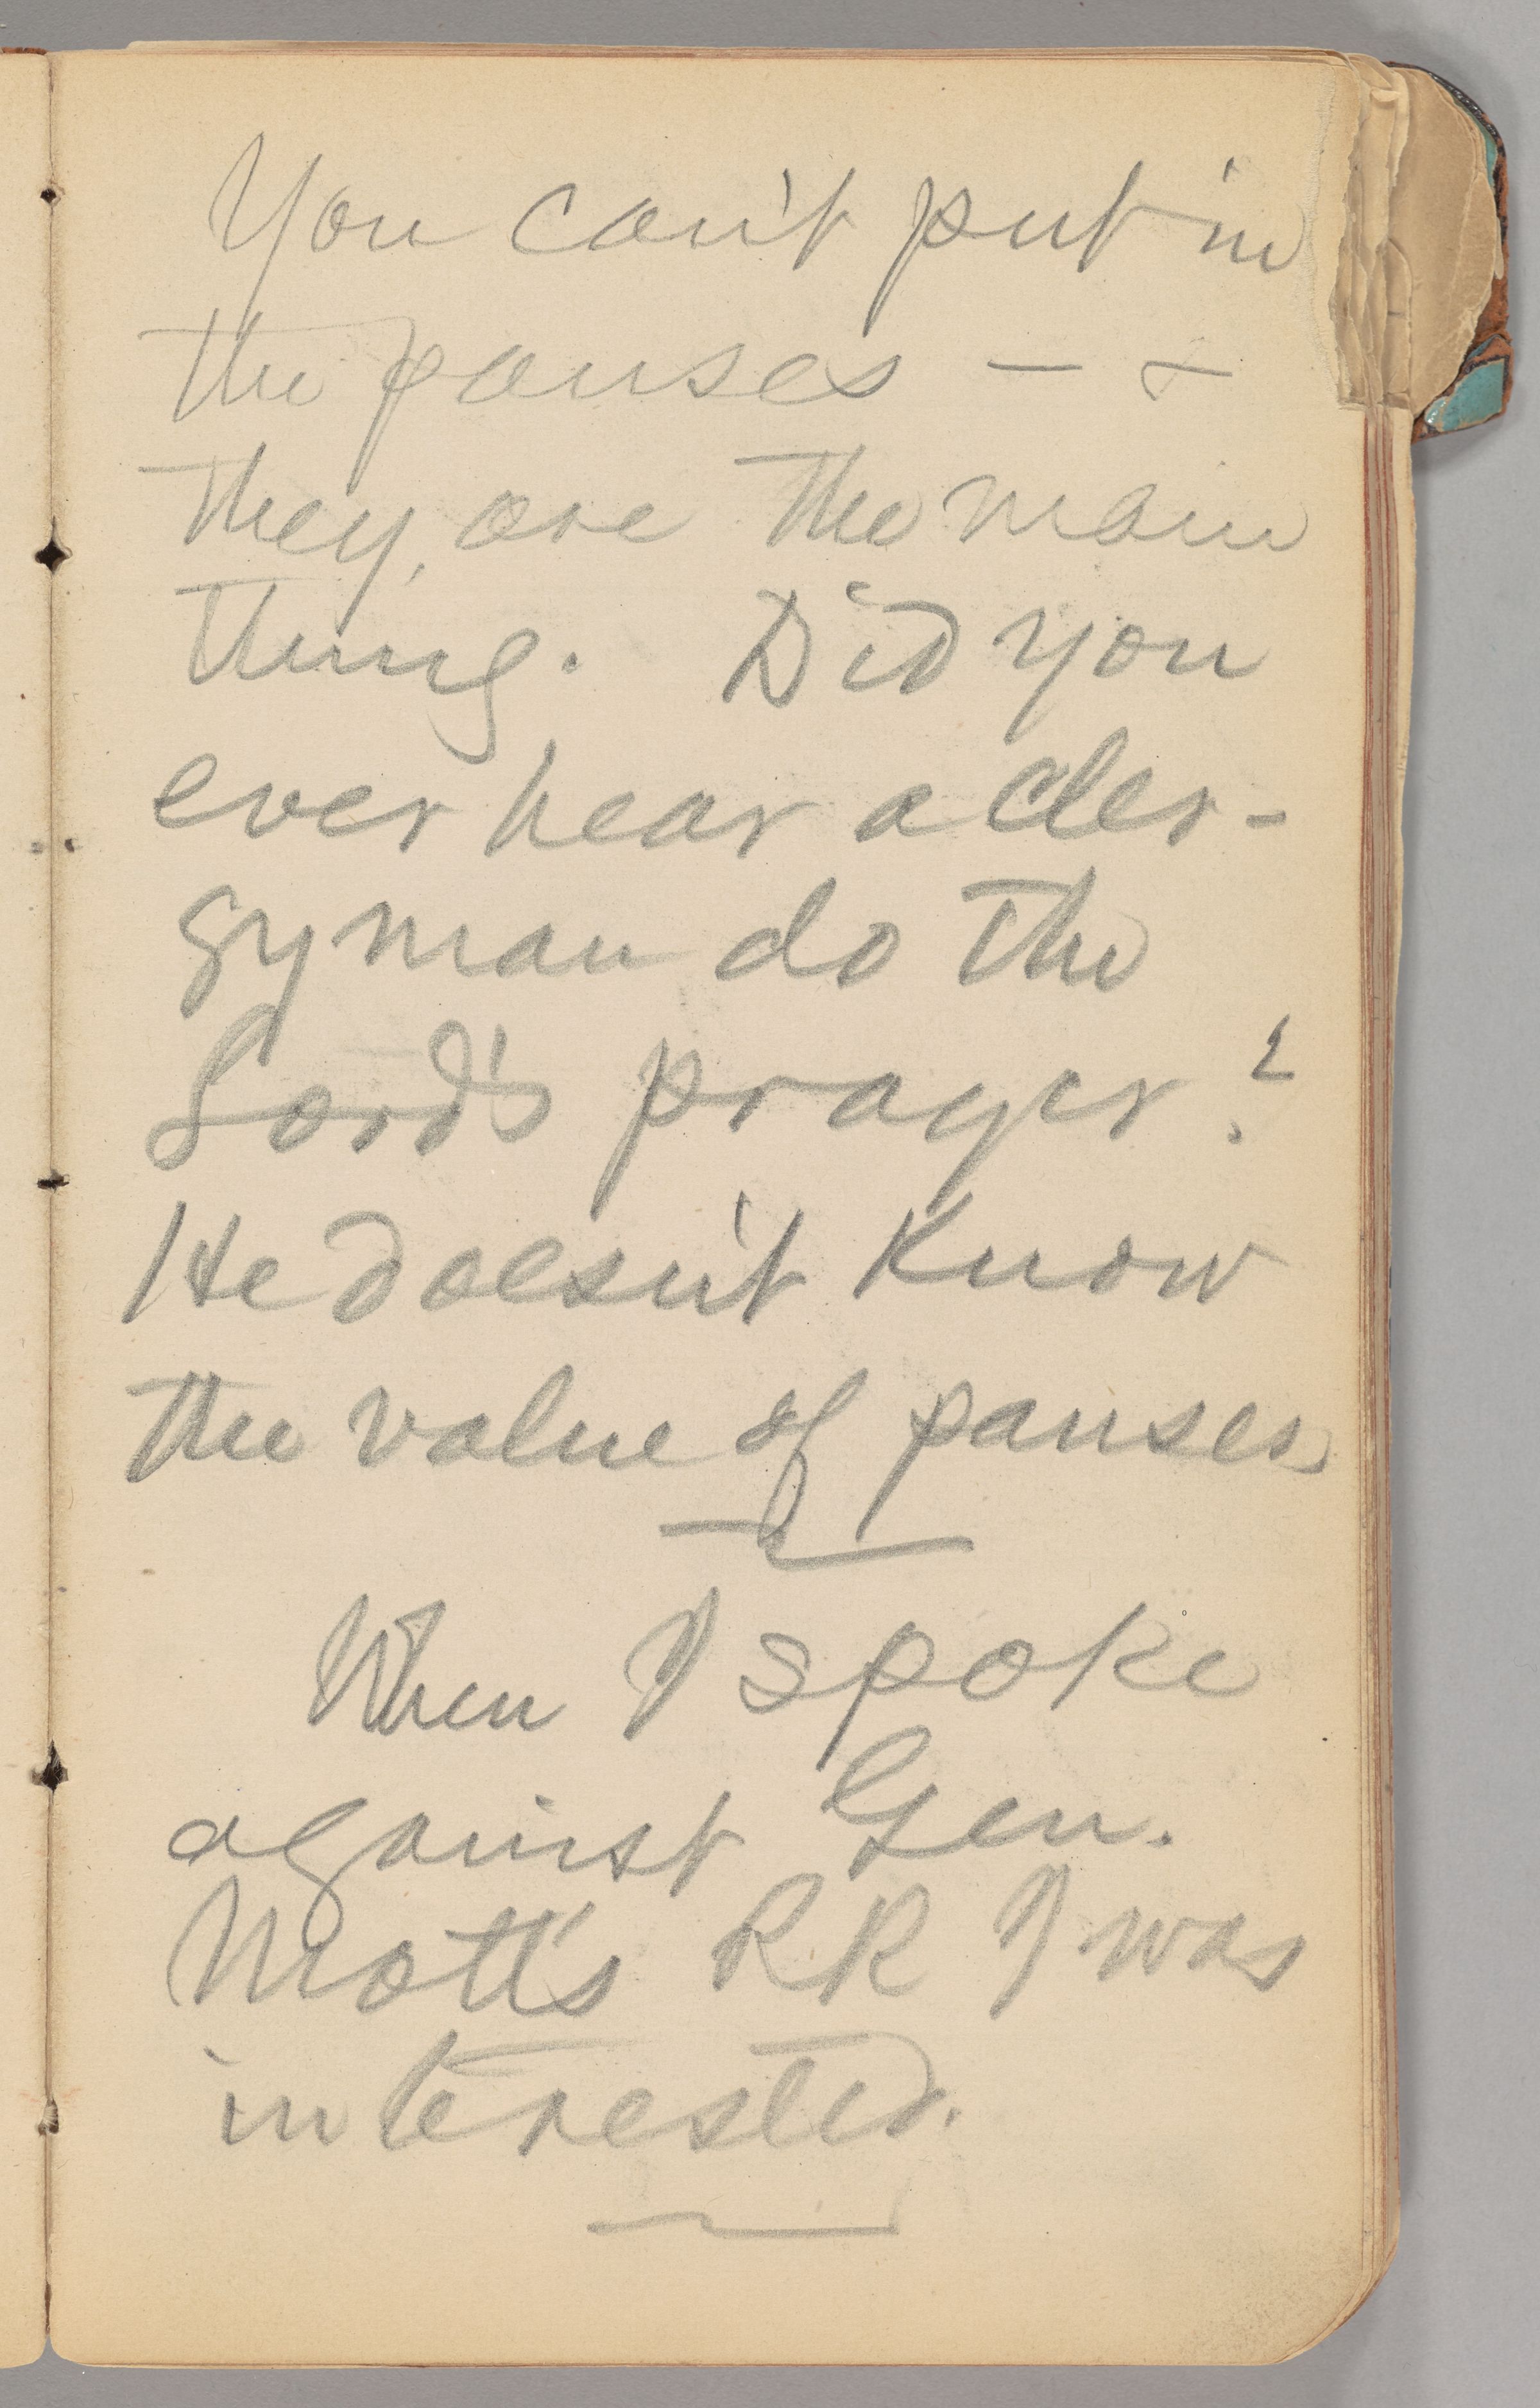 You can't put in
the pauses — &
they are the main
thing. Did you
ever hear a cler-
gyman do the
Lord's prayer?
He doesn't know
the value of pauses
When I spoke
against Gen.
Mott's RR I was
interested.